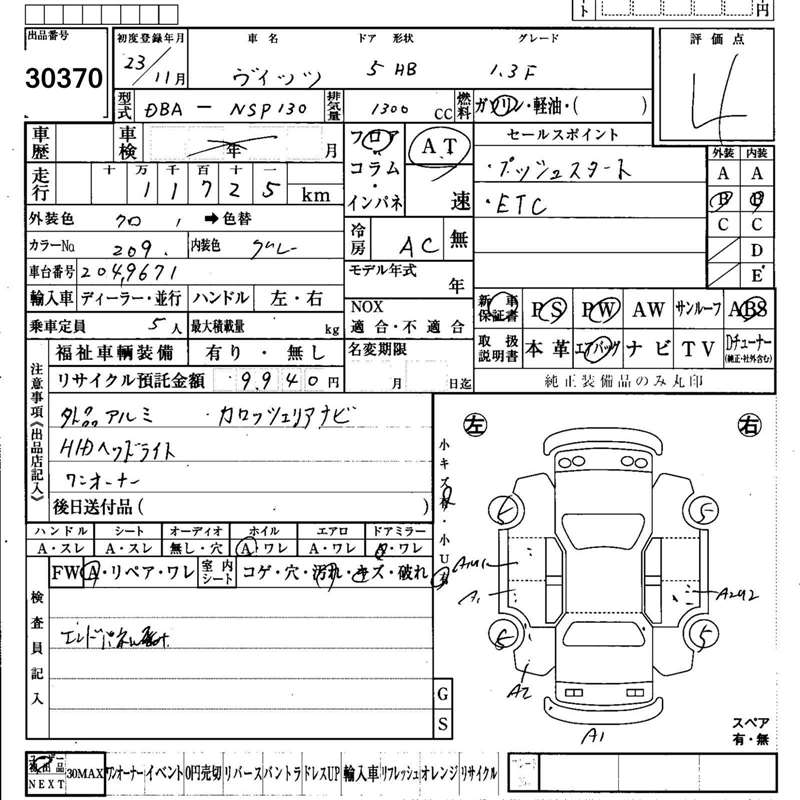 ト 円
出品番号 初度登録年月 車名 ドア 形状 グレード 評価点
30370 23/11月 ヴィッツ 5 HB 1.3F 4
型式 DBA - NSP130 排気量 1300 CC 燃料 ガソリン・軽油・( )
車歴 車検 年 月 フロア・コラム・インパネ AT 速 セールスポイント
外装 内装
走行 十 万 千 百 十 一
11725 km
・プッシュスタート
・ETC
A A
B B
C C
D
E
外装色 クロ ➡色替 冷房 AC 無
カラーNo. 209 内装色 グレー
車台番号 2049671 モデル年式 年
輸入車 ディーラー・並行 ハンドル 左・右 NOX 適合・不適合
新車保証書 PS PW AW サンルーフ ABS
乗車定員 5人 最大積載量 kg
取扱説明書 本革 エアバッグ ナビ TV Dチューナー (純正・社外含む)
福祉車輌装備 有り・無し 名変期限 月 日迄
純正装備品のみ丸印
リサイクル預託金額 9,940円
注意事項《出品店記入》
アルミ ・カロッツェリアナビ
HIDヘッドライト
ワンオーナー
後日送付品( )
左 右
小キズ有・小U有
ハンドル シート オーディオ ホイル エアロ ドアミラー
A・スレ A・スレ 無し・穴 A・ワレ A・ワレ A・ワレ
FW A・リペア・ワレ 室内シート コゲ・穴・汚れ・キズ・破れ
検査員記入
5 5
A1U1 A2U2
A1
5 5
A2
A1
G
S
スペア
有・無
NEXT 30MAX ワンオーナー イベント 0円売切 リバース バントラ ドレスUP 輸入車 リフレッシュ オレンジ リサイクル